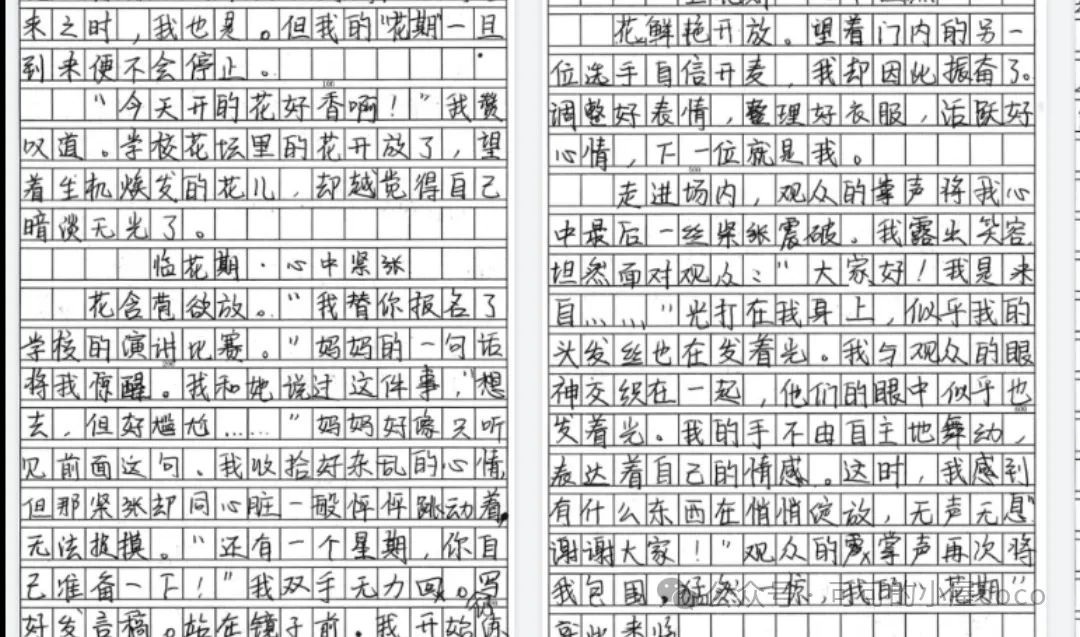 来之时，我也是。但我的“花期”一旦
到来便不会停止。
100
“今天开的花好香啊！”我赞
叹道。学校花坛里的花开放了，望
着生机焕发的花儿，却越觉得自己
暗淡无光了。
临花期·心中紧张
花含苞欲放。“我替你报名了
学校的演讲比赛。”妈妈的一句话
将我惊醒。我和她说过这件事，“想
去，但好尴尬……”妈妈好像只听
见前面这句。我收拾好杂乱的心情，
但那紧张却同心脏一般怦怦跳动着，
无法捉摸。“还有一个星期，你自
己准备一下！”我双手无力回。写
好发言稿。站在镜子前。我开始
花鲜艳开放。望着门内的另一
位选手自信开麦，我却因此振奋了。
调整好表情，整理好衣服，活跃好
心情，下一位就是我。
500
走进场内，观众的掌声将我心
中最后一丝紧张震破。我露出笑容，
坦然面对观众：“大家好！我是来
自……”光打在我身上，似乎我的
头发丝也在发着光。我与观众的眼
神交织在一起，他们的眼中似乎也
600
发着光。我的手不由自主地舞动，
表达着自己的情感。这时，我感到
有什么东西在悄悄绽放，无声无息“
谢谢大家！”观众的掌声再次将
我包围，猛然一惊，我的“花期”
就此来临